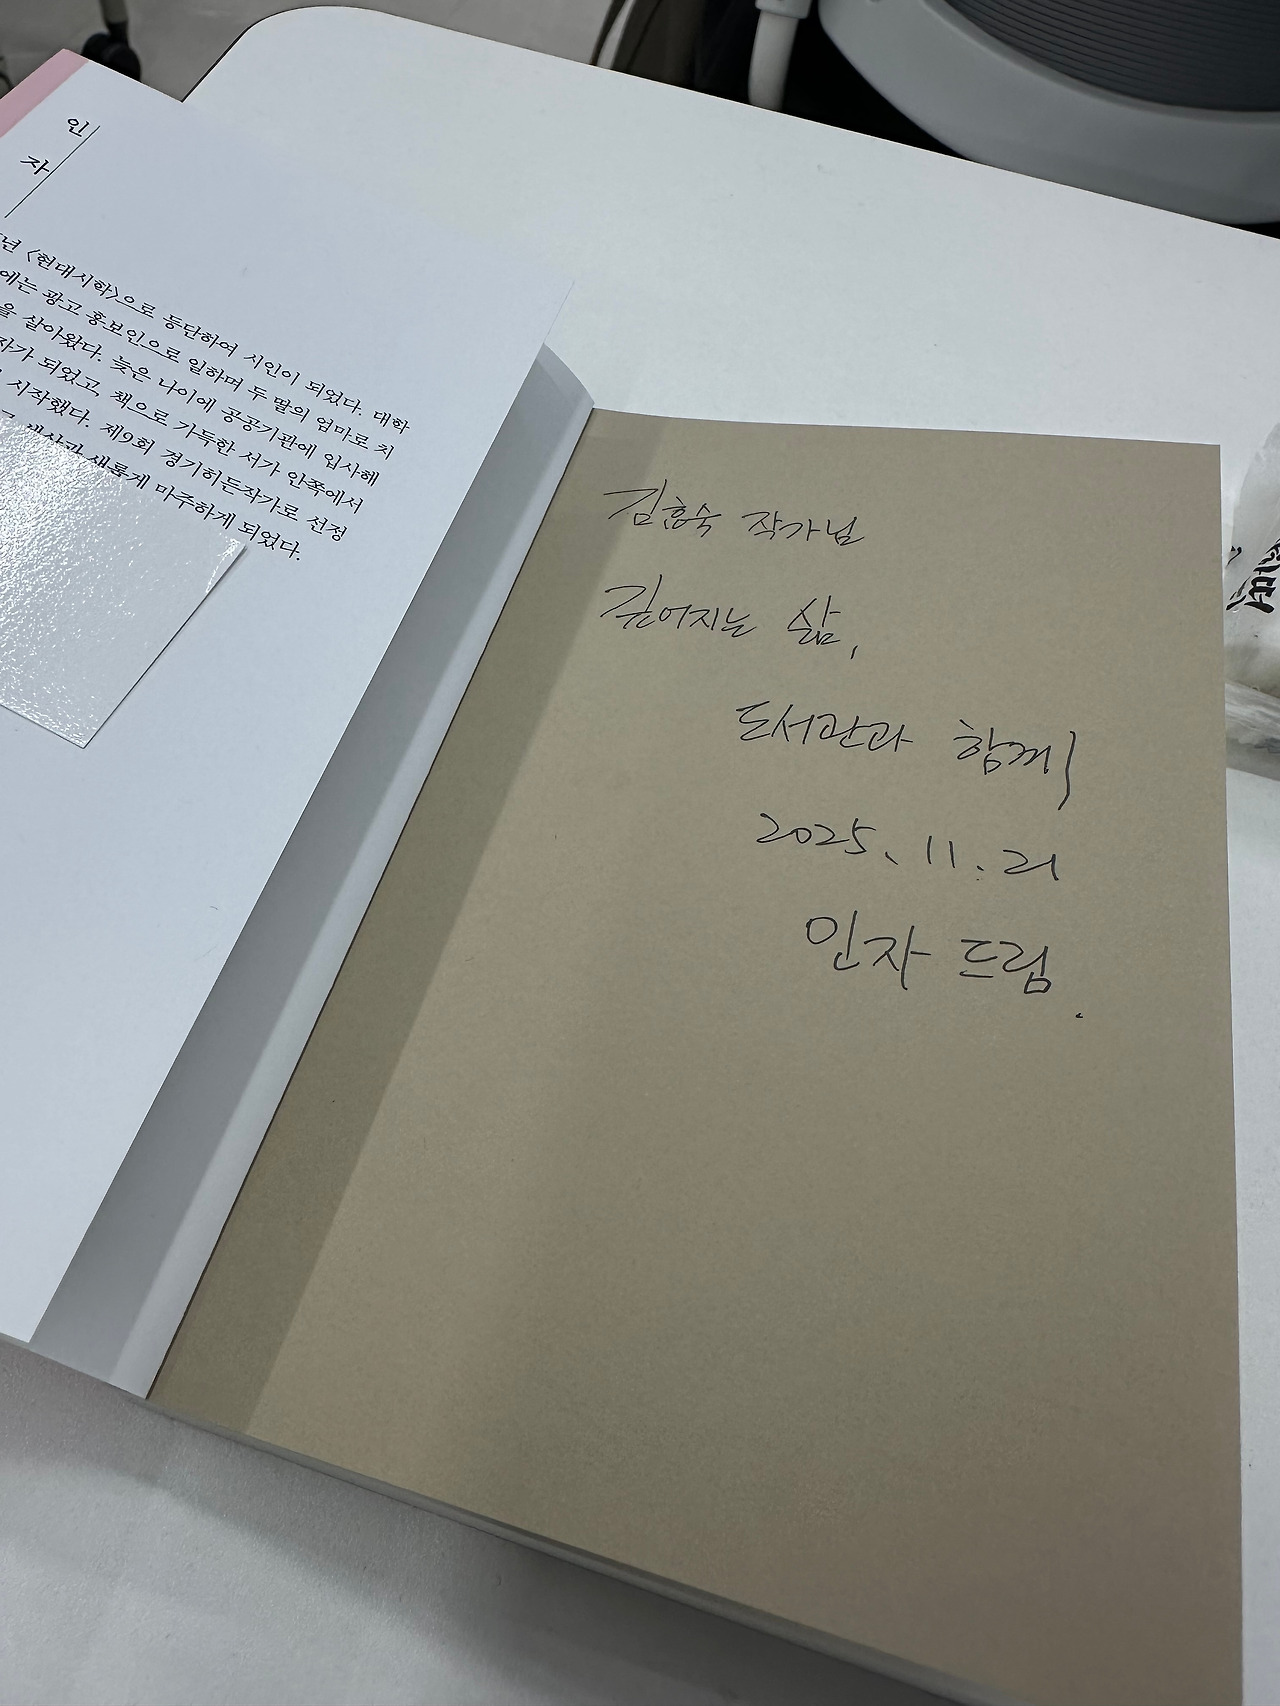 인
자
년 <현대시학>으로 등단하여 시인이 되었다. 대학
에는 광고 홍보인으로 일하며 두 딸의 엄마로 치
을 살아왔다. 늦은 나이에 공공기관에 입사해
자가 되었고, 책으로 가득한 서가 안쪽에서
시작했다. 제9회 경기히든작가로 선정
세상과 새롭게 마주하게 되었다.
김효숙 작가님
깊어지는 삶,
도서관과 함께
2025. 11. 21
인자 드림.